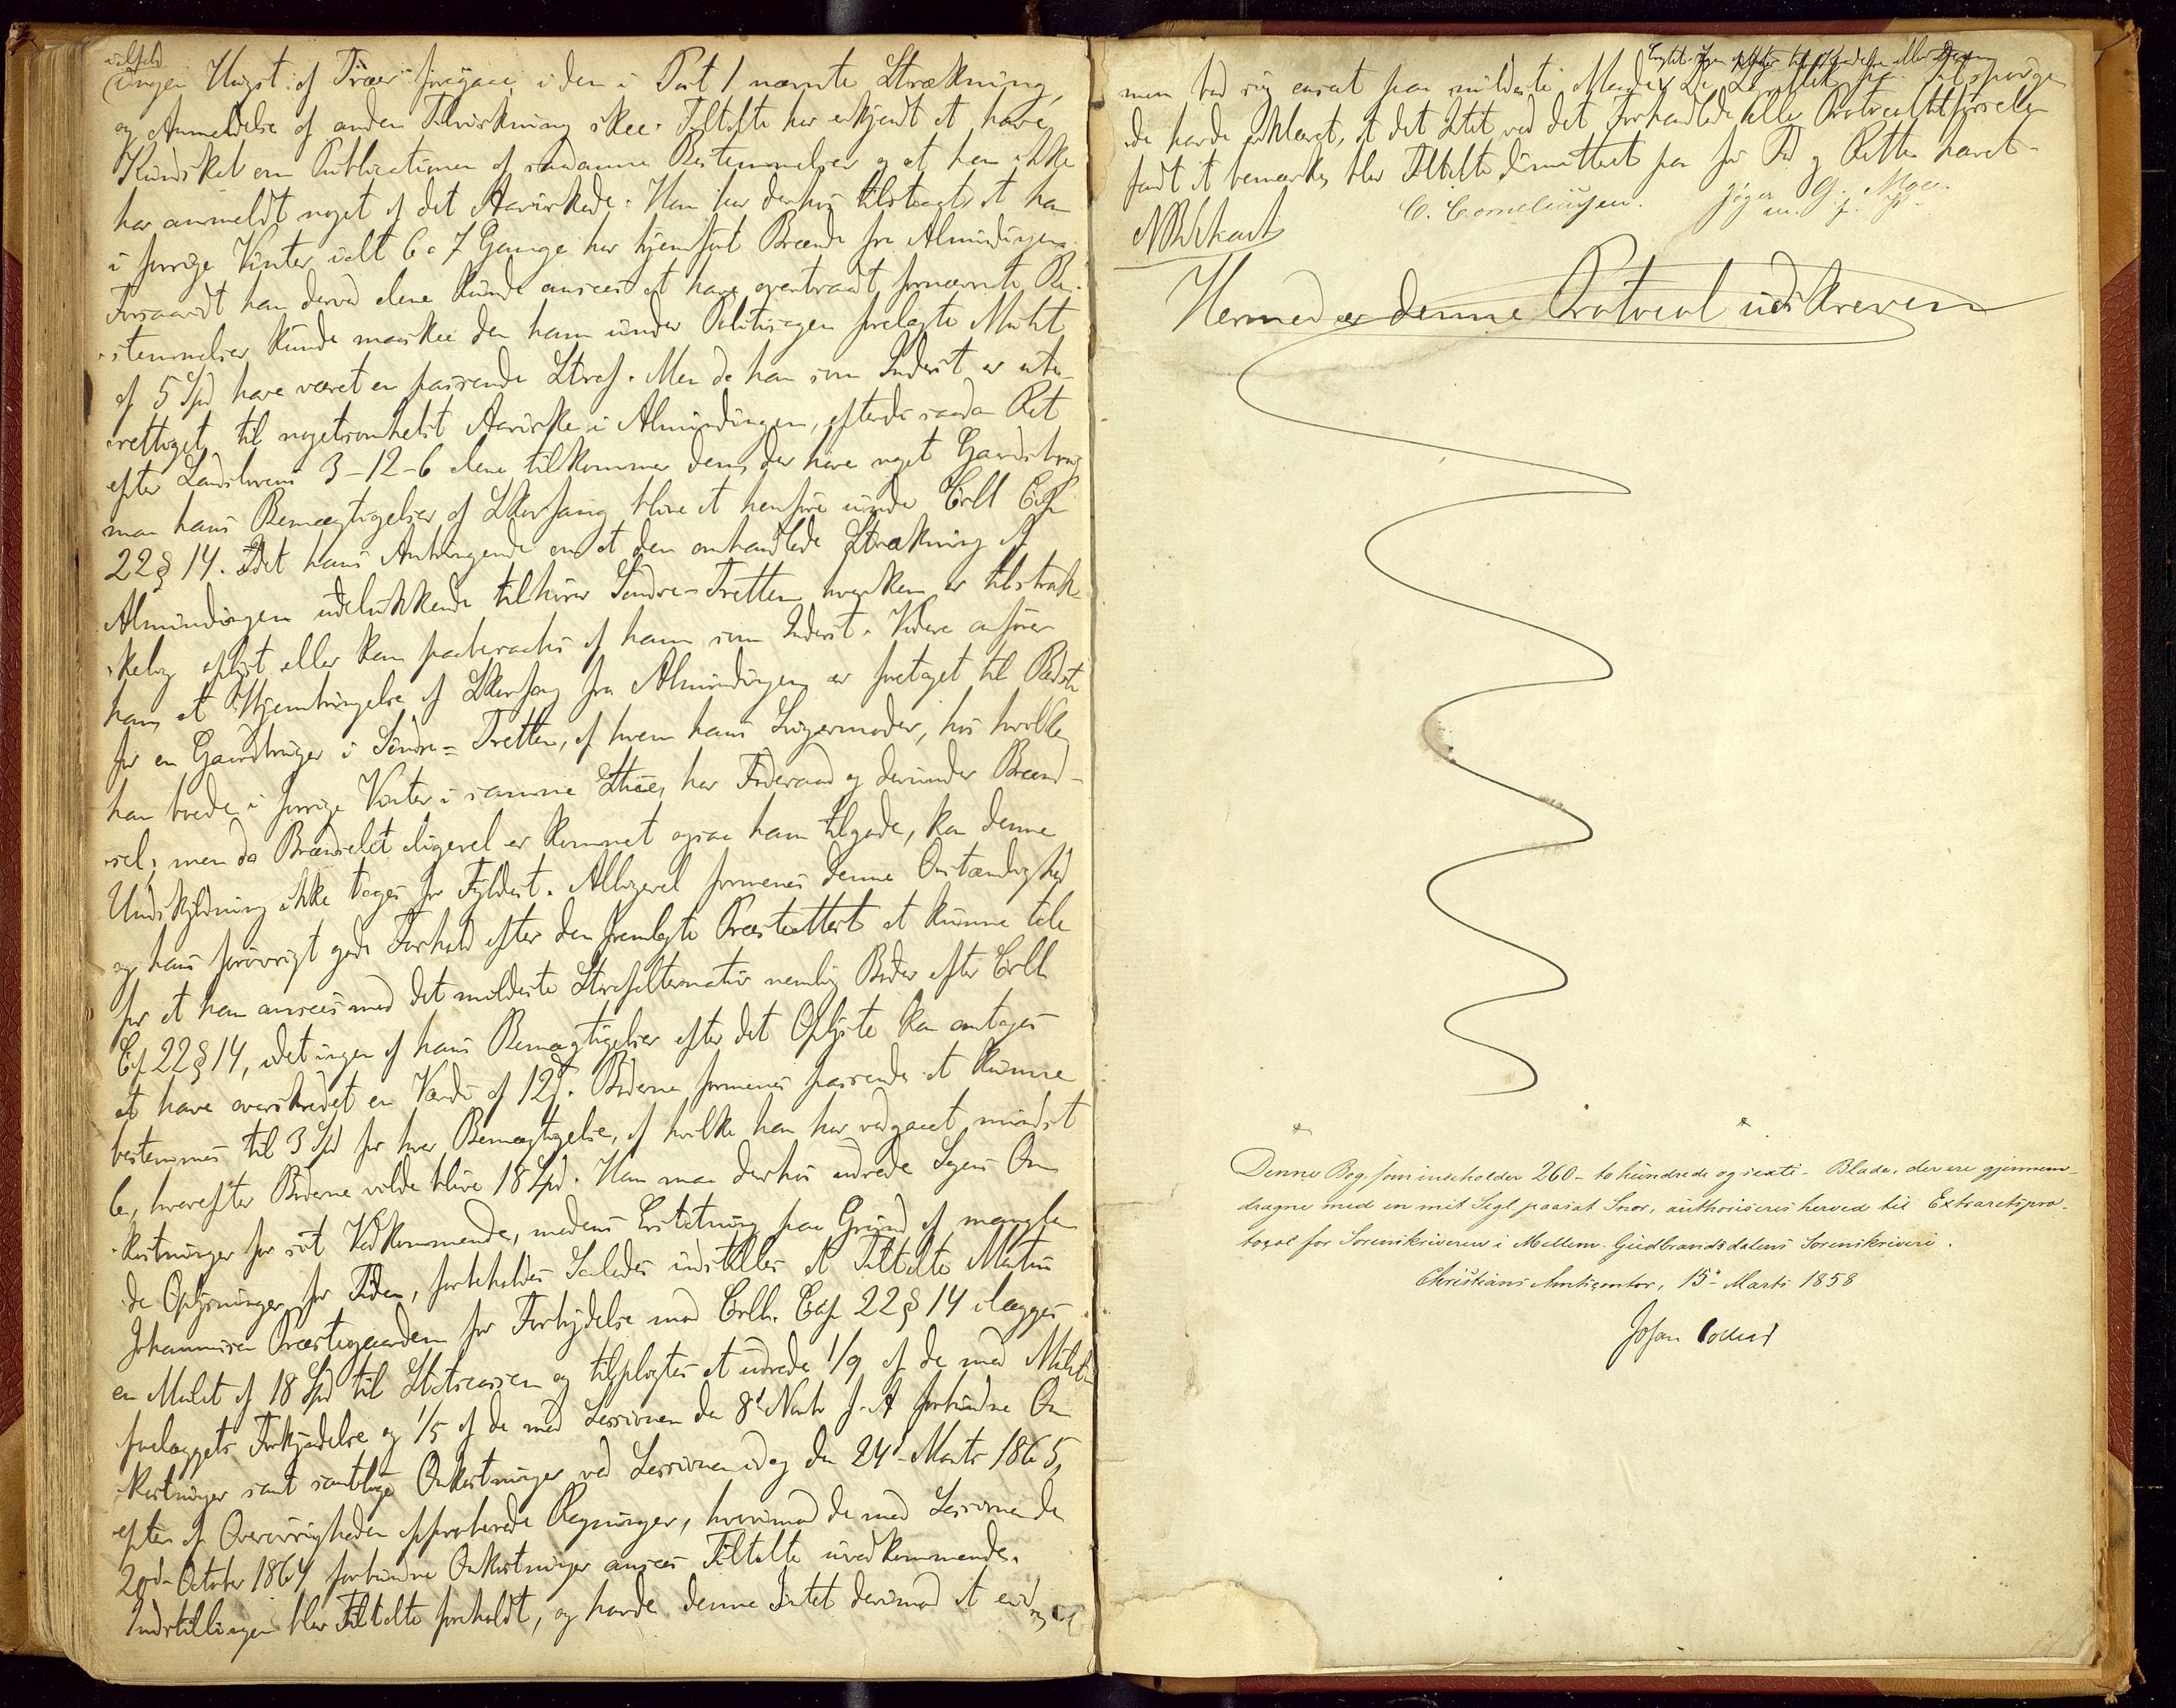 ingen Hugst af Træer foregaae i den i Post 1 nævnte Strækning,
og Anmeldelse af anden Tilvirkning skee. Tiltalte har erkjendt at have
Kundskab om Publicationen af saadanne Bestemmelser og at han ikke
har anmeldt noget af det Avirkede. Han har derhos tilstaaet at han
i forrige Vinter ialt 6 a 7 Gange har hjemført Brænde fra Almindingen.
Forsaavidt han derved alene kunde ansees at have overtraadt fornævnte Be-
stemmelser kunde maaskee den ham under Politisagen forelagte Mulkt
af 5 Spd have været en passende Straf. Men da han som Inderst er ube-
rettiget til nogetsomhelst Avirke i Almindingen, efterdi saadan Ret
efter Landslovens 3-12-6 alene tilkommer dem, der have noget Gaardsbrug
maa hans Bemægtigelser af Skovfang blive at henføre under Crll Cap
22 § 14. Idet hans Anbringende om at den omhandlede Strækning af
Almindingen udelukkende tilhører Søndre-Tretten hverken er tilstræk-
kelig oplyst eller kan paaberaabes af ham som Inderst. Videre anfører
han, at Hjembringelse af Skovfang fra Almindingen er foretaget til Bedste
for en Gaardbruger i Søndre-Tretten, af hvem hans Svigermoder, hos hvilken
han boede i forrige Vinter i samme Stue, har Føderaad og derunder Brænd-
sel; men da Brændselet aligevel er kommet ogsaa ham tilgode, kan denne
Undskyldning ikke tages for Fyldest. Alligevel formenes denne Omstændighed
og hans forøvrigt gode Forhold efter den fremlagte Præsteattest at kunne tale
for at han ansees med det mildeste Strafalternativ nemlig Bøder efter Crll
Cap 22 § 14, idet ingen af hans Bemægtigelser efter det Oplyste kan antages
at have overskredet en Værdi af 12 ß. Bøderne formenes passende at kunne
bestemmes til 3 Spd for hver Bemægtigelse, af hvilke han har vedgaaet mindst
6, hvorefter Bøderne vilde blive 18 Spd. Han maa derhos udrede Sagens Om-
kostninger for sit Vedkommende, medens Erstatning paa Grund af manglen-
de Oplysninger for Tiden, forbeholdes. Saaledes indstilles at Tiltalte Martin
Johannesen Præstegaarden for Forbrydelse mod Crll. Cap 22 § 14 ilægges
en Mulct af 18 Spd til Statscassen og tilpligtes at udrede 1/9 af de med Mulct-
forelæggets Forkyndelse og 1/5 af de med Sessionen den 8de Novbr f. A forbundne Om-
kostninger samt samtlige Omkostninger ved Sessionen idag den 24de Marts 1865,
efter af Overøvrigheden approberede Regninger, hvorimod de med Sessionen de
20de October 1864 forbundne Omkostninger ansees Tiltalte uvedkommende.
Indstillingen blev Tiltalte foreholdt, og havde denne Intet derimod at erindre,
men bad sig anseet paa mildeste Maade.
de havde erklæret, at det Intet ved det Forhandlede eller Protocoltilførselen
fandt at bemærke, blev Tiltalte dimitteret paa fri Fod og Retten hævet.
C. Corneliussen. G. Moe.
m. p. P.
Hermed er denne Protocol udskreven
Denne Bog, som indeholder 260 - to hundrede og sexti - Blade, der ere gjennem-
dragne med en mit Segl paasat Snor, authoriseres herved til Extraretspro-
tocol for Sorenskriveren i Mellem-Gudbrandsdalens Sorenskriveri.
Christians Amtscontor, 15de Marts 1858
Johan Collett